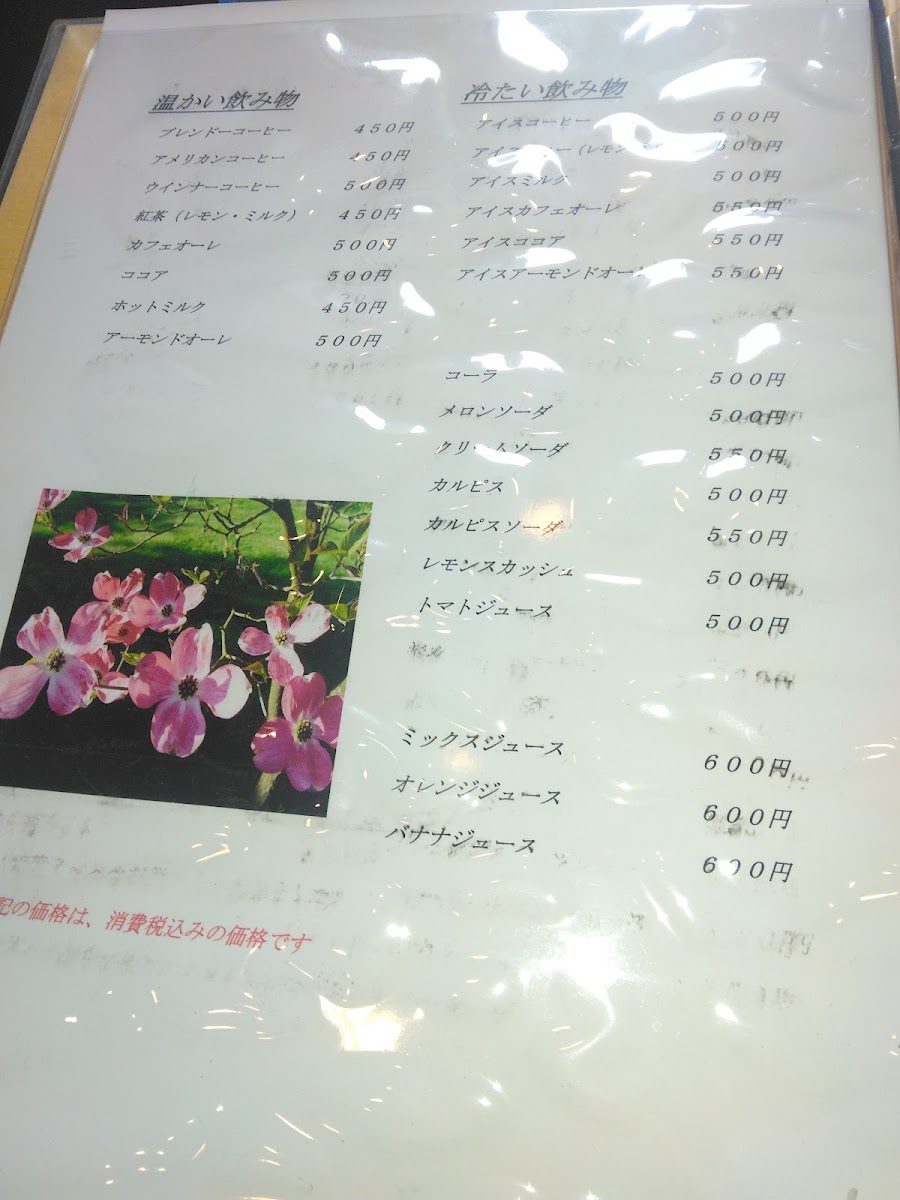 温かい飲み物
ブレンドーコーヒー ４５０円
アメリカンコーヒー ４５０円
ウインナーコーヒー ５００円
紅茶（レモン・ミルク） ４５０円
カフェオーレ ５００円
ココア ５００円
ホットミルク ４５０円
アーモンドオーレ ５００円
冷たい飲み物
アイスコーヒー ５００円
（レモン ５００円
アイスミルク ５００円
アイスカフェオーレ ５５０円
アイスココア ５５０円
アイスアーモンドオーレ ５５０円
コーラ ５００円
メロンソーダ ５００円
クリームソーダ ５５０円
カルピス ５００円
カルピスソーダ ５５０円
レモンスカッシュ ５００円
トマトジュース ５００円
ミックスジュース ６００円
オレンジジュース ６００円
バナナジュース ６００円
記の価格は、消費税込みの価格です